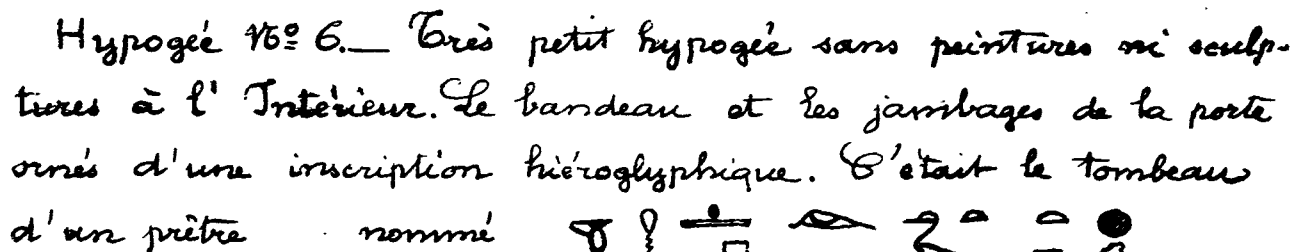 Hypogée Nº 6.— Très petit hypogée sans peintures ni sculp-
tures à l' Intérieur. Le bandeau et les jambages de la porte
ornés d'une inscription hiéroglyphique. C'était le tombeau
d'un prêtre nommé